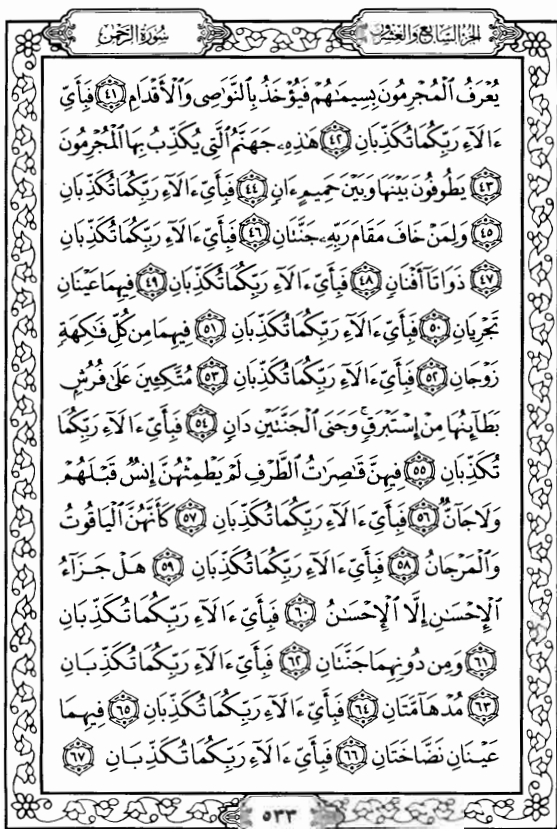 الجزء السابع والعشرون
سورة الرحمن
يُعْرَفُ الْمُجْرِمُونَ بِسِيمَاهُمْ فَيُؤْخَذُ بِالنَّوَاصِي وَالْأَقْدَامِ ٤١ فَبِأَيِّ
ءَالَآءِ رَبِّكُمَا تُكَذِّبَانِ ٤٢ هَٰذِهِۦ جَهَنَّمُ الَّتِي يُكَذِّبُ بِهَا الْمُجْرِمُونَ
٤٣ يَطُوفُونَ بَيْنَهَا وَبَيْنَ حَمِيمٍ ءَانٍ ٤٤ فَبِأَيِّ ءَالَآءِ رَبِّكُمَا تُكَذِّبَانِ
٤٥ وَلِمَنْ خَافَ مَقَامَ رَبِّهِۦ جَنَّتَانِ ٤٦ فَبِأَيِّ ءَالَآءِ رَبِّكُمَا تُكَذِّبَانِ
٤٧ ذَوَاتَآ أَفْنَانٍ ٤٨ فَبِأَيِّ ءَالَآءِ رَبِّكُمَا تُكَذِّبَانِ ٤٩ فِيهِمَا عَيْنَانِ
تَجْرِيَانِ ٥٠ فَبِأَيِّ ءَالَآءِ رَبِّكُمَا تُكَذِّبَانِ ٥١ فِيهِمَا مِن كُلِّ فَٰكِهَةٍ
زَوْجَانِ ٥٢ فَبِأَيِّ ءَالَآءِ رَبِّكُمَا تُكَذِّبَانِ ٥٣ مُتَّكِـِٔينَ عَلَىٰ فُرُشٍۭ
بَطَآئِنُهَا مِنْ إِسْتَبْرَقٍ ۚ وَجَنَى الْجَنَّتَيْنِ دَانٍ ٥٤ فَبِأَيِّ ءَالَآءِ رَبِّكُمَا
تُكَذِّبَانِ ٥٥ فِيهِنَّ قَٰصِرَٰتُ الطَّرْفِ لَمْ يَطْمِثْهُنَّ إِنسٌ قَبْلَهُمْ
وَلَا جَآنٌّ ٥٦ فَبِأَيِّ ءَالَآءِ رَبِّكُمَا تُكَذِّبَانِ ٥٧ كَأَنَّهُنَّ الْيَاقُوتُ
وَالْمَرْجَانُ ٥٨ فَبِأَيِّ ءَالَآءِ رَبِّكُمَا تُكَذِّبَانِ ٥٩ هَلْ جَزَآءُ
الْإِحْسَٰنِ إِلَّا الْإِحْسَٰنُ ٦٠ فَبِأَيِّ ءَالَآءِ رَبِّكُمَا تُكَذِّبَانِ
٦١ وَمِن دُونِهِمَا جَنَّتَانِ ٦٢ فَبِأَيِّ ءَالَآءِ رَبِّكُمَا تُكَذِّبَانِ
٦٣ مُدْهَآمَّتَانِ ٦٤ فَبِأَيِّ ءَالَآءِ رَبِّكُمَا تُكَذِّبَانِ ٦٥ فِيهِمَا
عَيْنَانِ نَضَّاخَتَانِ ٦٦ فَبِأَيِّ ءَالَآءِ رَبِّكُمَا تُكَذِّبَانِ ٦٧
٥٣٣